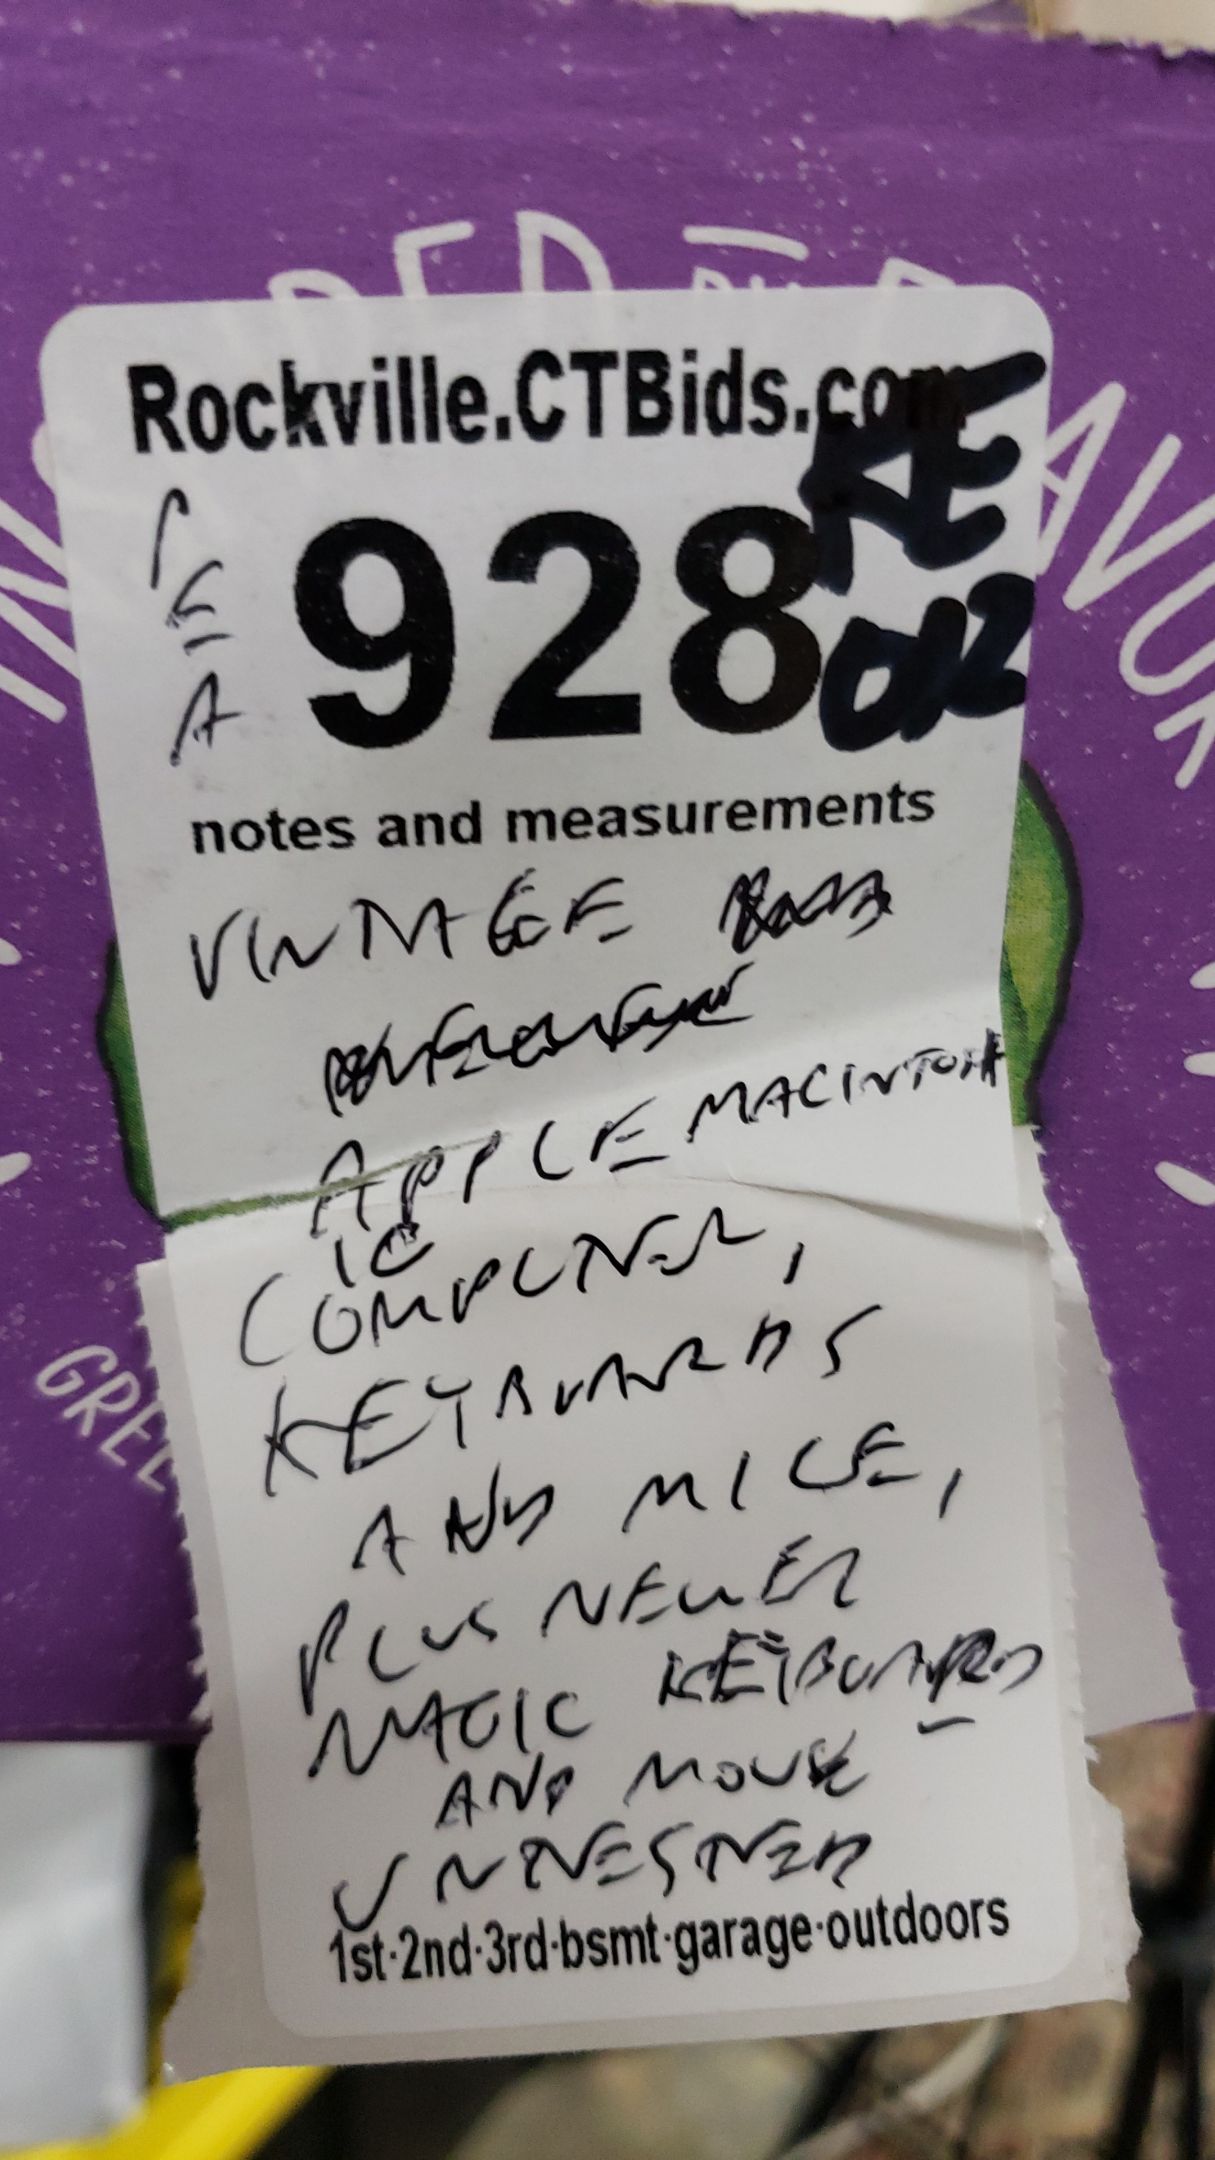 Rockville.CTBids.com
928
notes and measurements
VINTAGE
APPLE MACINTOSH
COMPUTER,
KEYBOARDS
AND MICE,
PLUS NEWER
MAGIC KEYBOARD
AND MOUSE
UNTESTED
1st·2nd·3rd·bsmt·garage·outdoors